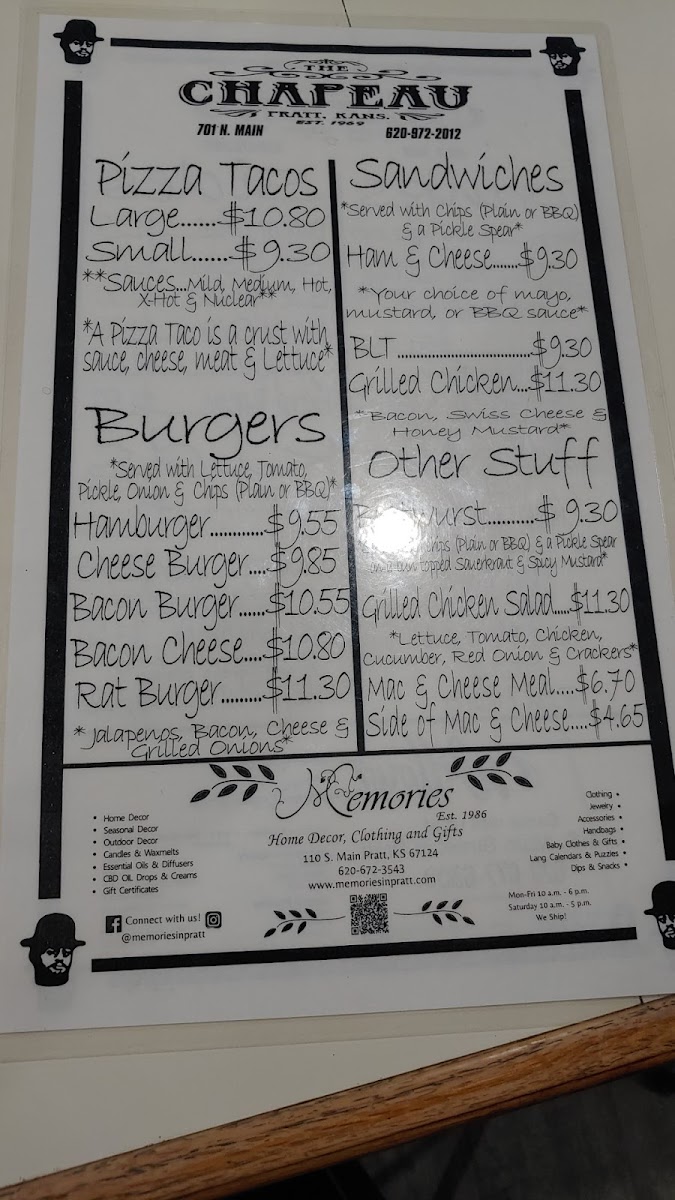 THE
CHAPEAU
PRATT, KANS.
EST. 1969
701 N. MAIN
620-972-2012
Pizza Tacos
Large......$10.80
Small......$9.30
**Sauces...Mild, Medium, Hot,
X-Hot & Nuclear**
*A Pizza Taco is a crust with
sauce, cheese, meat & Lettuce*
Burgers
*Served with Lettuce, Tomato,
Pickle, Onion & Chips (Plain or BBQ)*
Hamburger............$9.55
Cheese Burger....$9.85
Bacon Burger......$10.55
Bacon Cheese....$10.80
Rat Burger.........$11.30
*Jalapenos, Bacon, Cheese &
Grilled Onions*
Sandwiches
*Served with Chips (Plain or BBQ)
& a Pickle Spear*
Ham & Cheese.......$9.30
*Your choice of mayo,
mustard, or BBQ sauce*
BLT................................$9.30
Grilled Chicken...$11.30
*Bacon, Swiss Cheese &
Honey Mustard*
Other Stuff
.........$ 9.30
(Plain or BBQ) & a Pickle Spear
topped Sauerkraut & Spicy Mustard*
Grilled Chicken Salad.....$11.30
*Lettuce, Tomato, Chicken,
Cucumber, Red Onion & Crackers*
Mac & Cheese Meal....$6.70
Side of Mac & Cheese....$4.65
Memories
Est. 1986
Home Decor, Clothing and Gifts
110 S. Main Pratt, KS 67124
620-672-3543
www.memoriesinpratt.com
• Home Decor
• Seasonal Decor
• Outdoor Decor
• Candles & Waxmelts
• Essential Oils & Diffusers
• CBD OIL Drops & Creams
• Gift Certificates
Connect with us!
@memoriesinpratt
Clothing •
Jewelry •
Accessories •
Handbags •
Baby Clothes & Gifts •
Lang Calendars & Puzzles •
Dips & Snacks •
Mon-Fri 10 a.m. - 6 p.m.
Saturday 10 a.m. - 5 p.m.
We Ship!